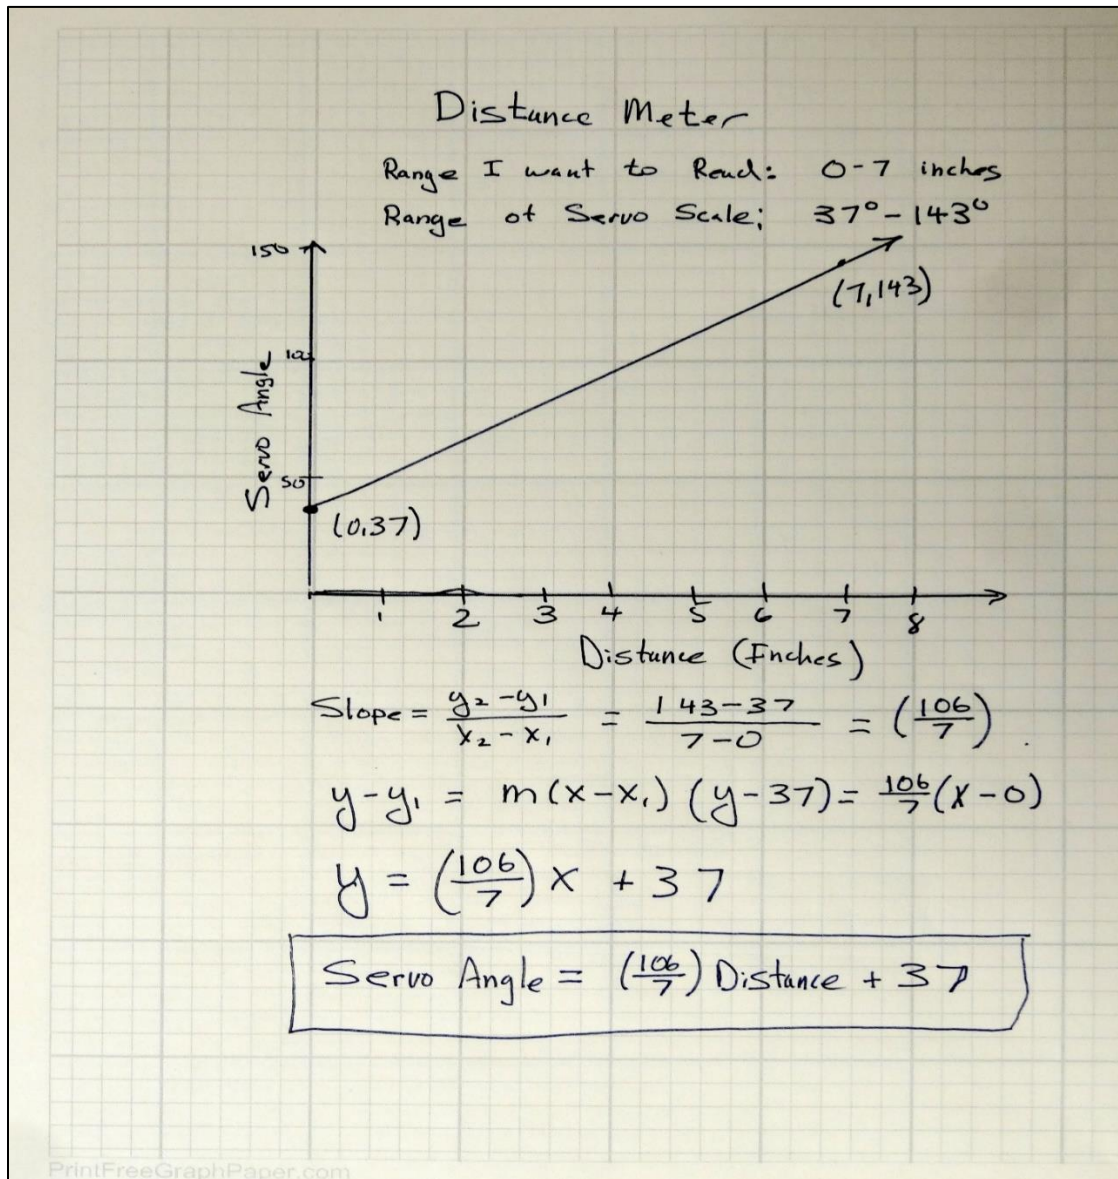 Distance Meter
Range I want to Read: 0-7 inches
Range of Servo Scale; 37° - 143°
150
100
50
Servo Angle
(7,143)
(0,37)
1 2 3 4 5 6 7 8
Distance (Inches)
Slope = y₂ - y₁ / x₂ - x₁ = 143-37 / 7-0 = (106/7).
y-y₁ = m(x-x₁) (y-37) = 106/7 (x-0)
y = (106/7) x + 37
Servo Angle = (106/7) Distance + 37
PrintFreeGraphPaper.com